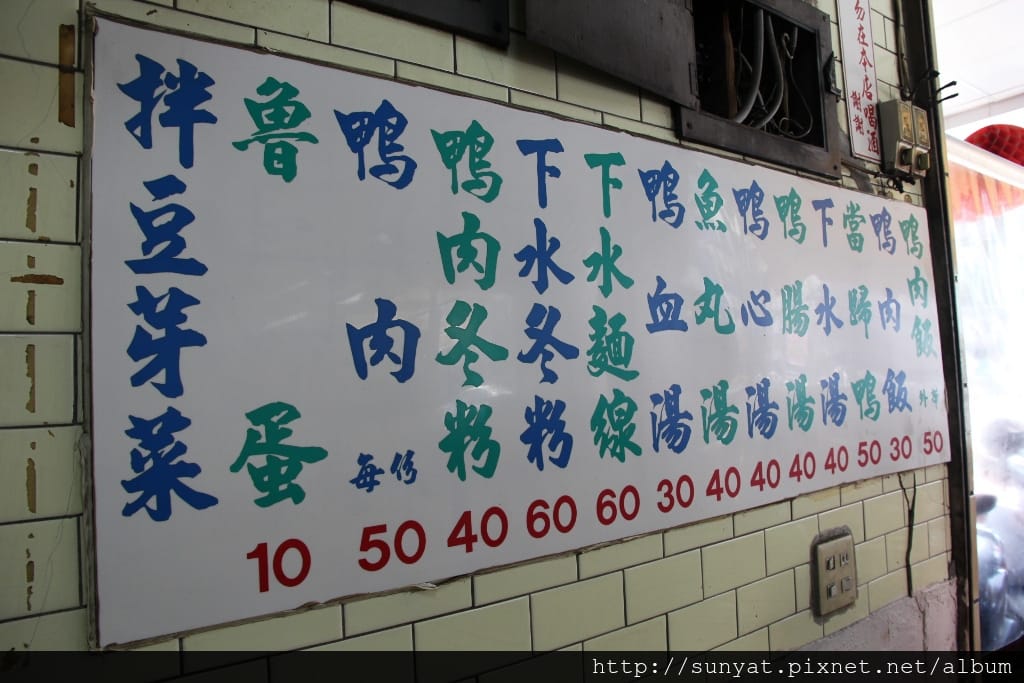 勿在本店喝酒
謝謝
鴨肉飯 外帶 50
鴨肉飯 30
當歸鴨 50
下水湯 40
鴨腸湯 40
鴨心湯 40
魚丸湯 40
鴨血湯 30
下水麵線 60
下水冬粉 60
鴨肉冬粉 40
鴨肉 每份 50
魯蛋 10
拌豆芽菜
http://sunyat.pixnet.net/album